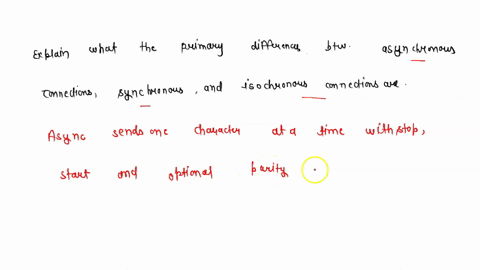 Explain what the primary differences btw. asynchronous
connections, synchronous, and isochronous connections are.
Async sends one character at a time with stop,
start and optional parity